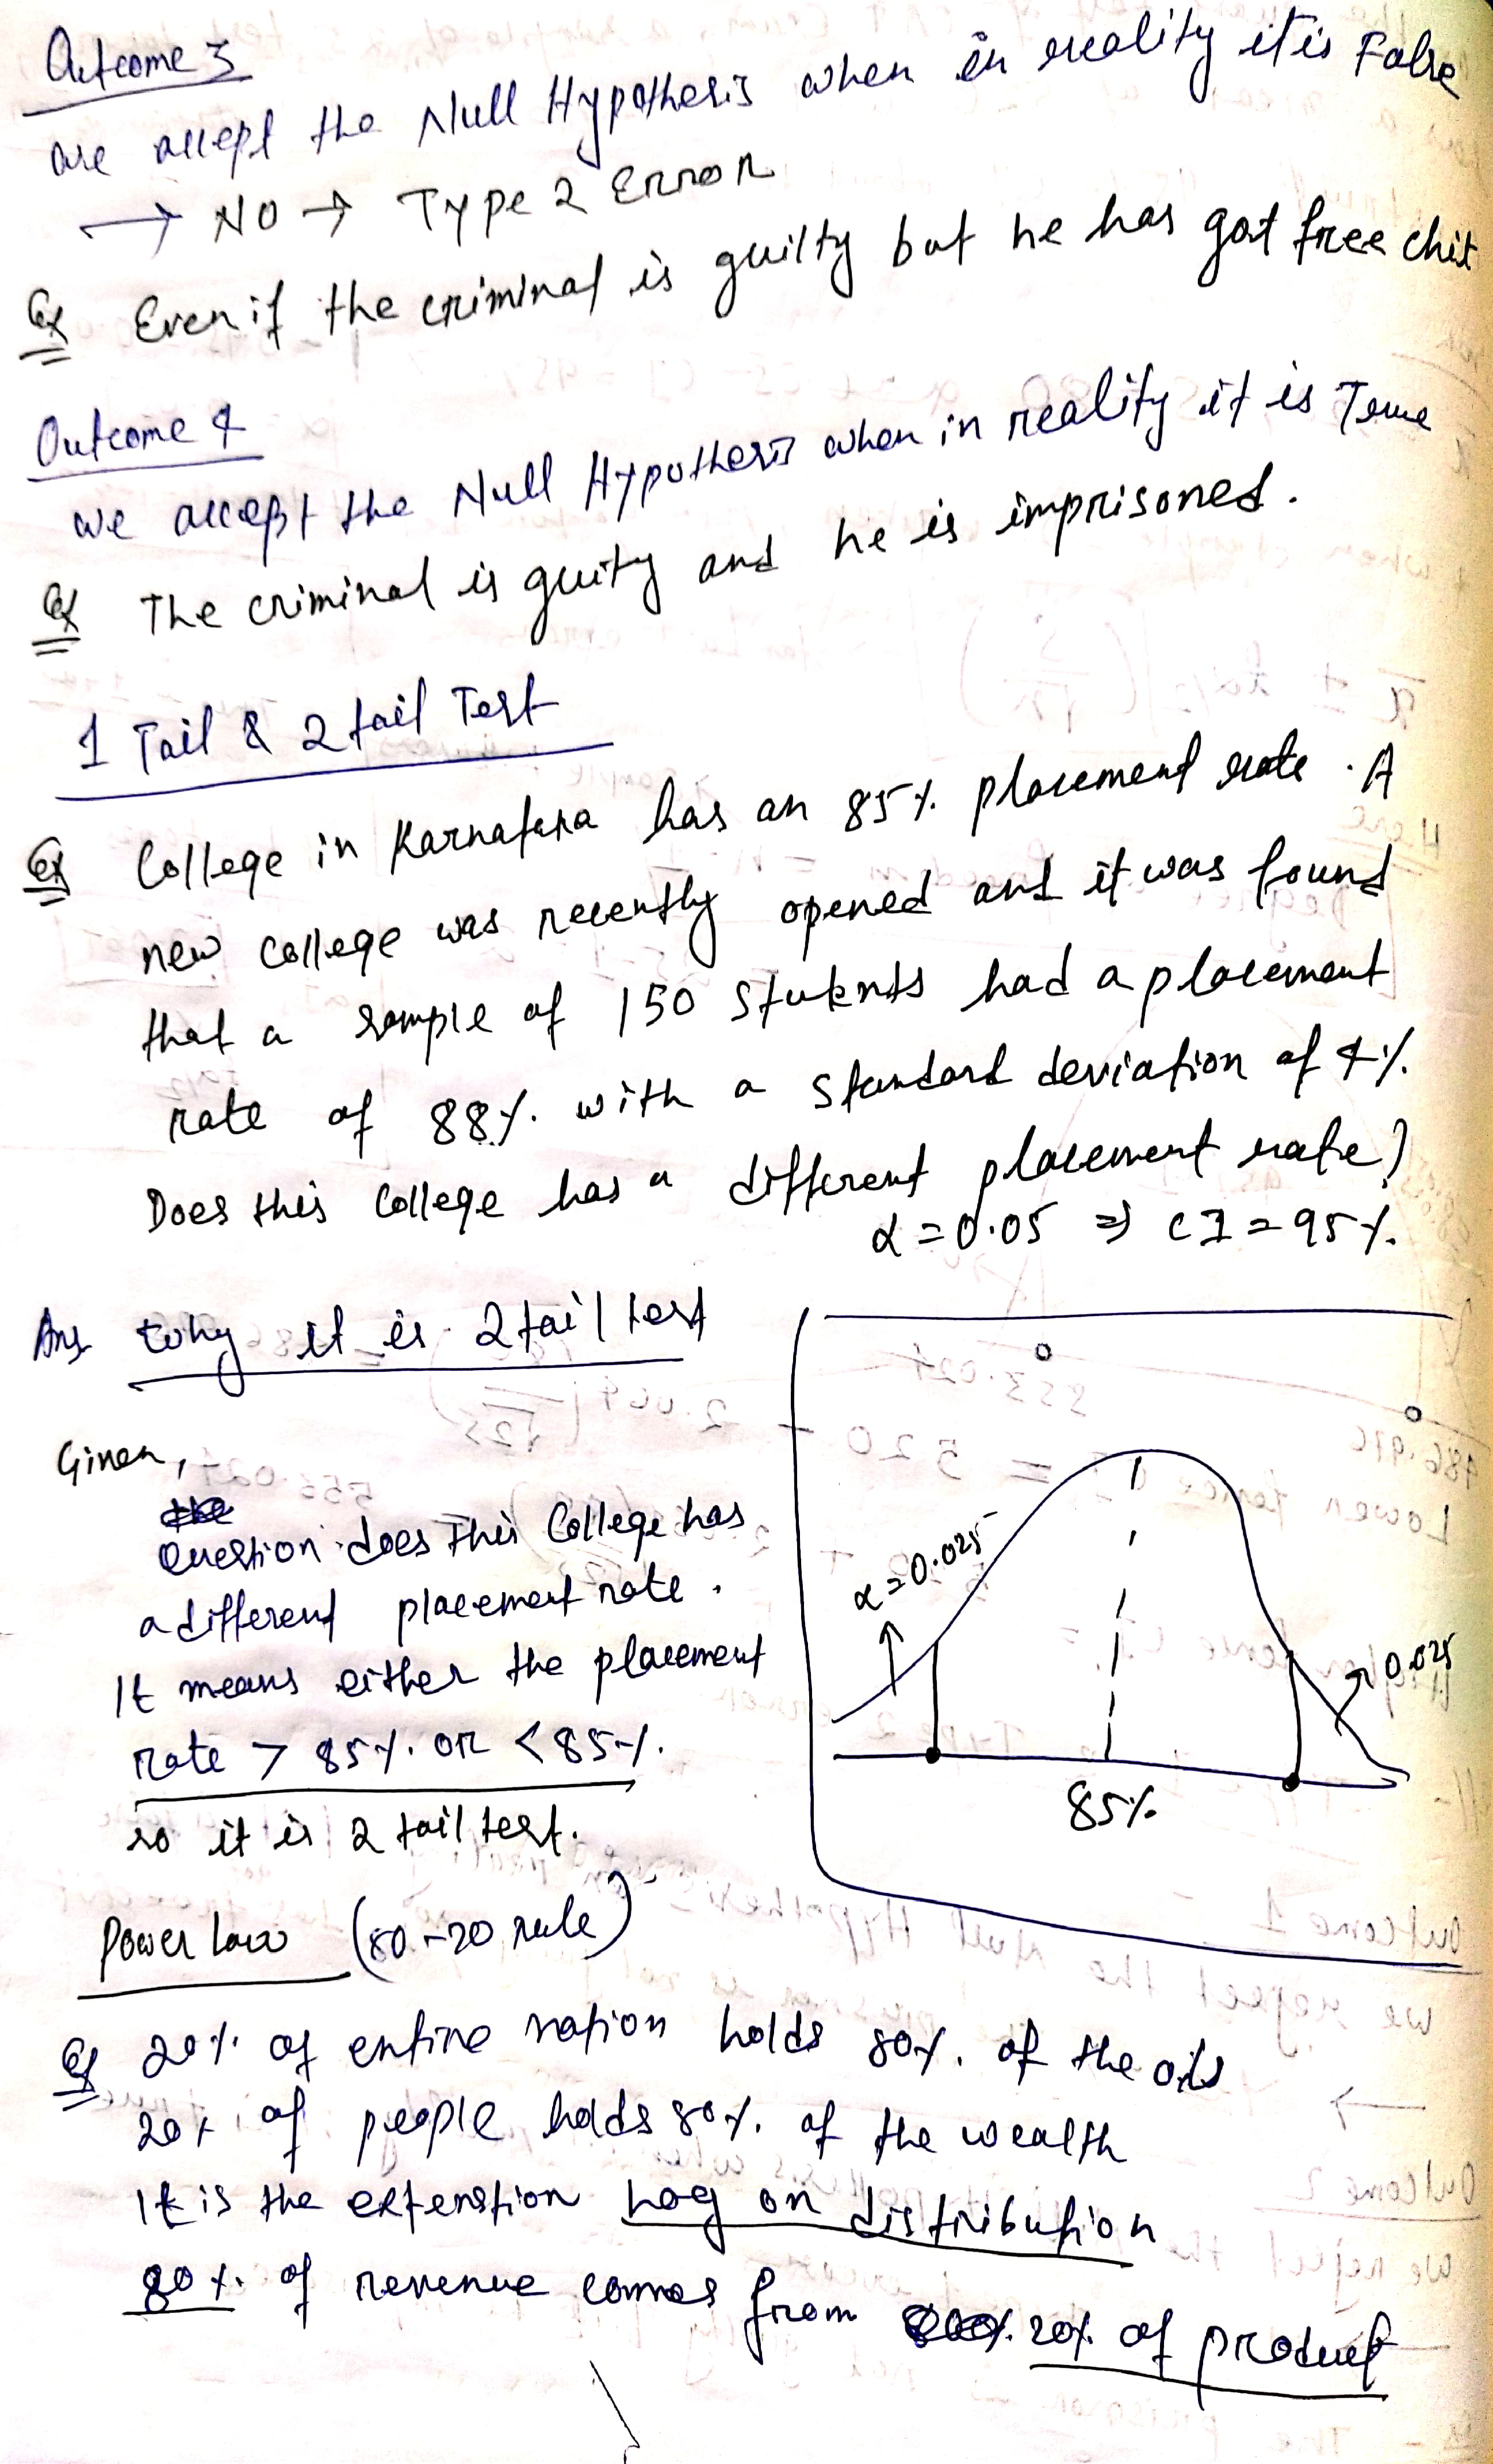 Outcome 3
we accept the Null Hypothesis when in reality it is False
→ NO → Type 2 Error
Ex Even if the criminal is guilty but he has got free chit
Outcome 4
we accept the Null Hypothesis when in reality it is True
Ex The criminal is guity and he is imprisoned.
1 Tail & 2 tail Test
Ex College in Karnataka has an 85% placement rate. A
new college was recently opened and it was found
that a sample of 150 students had a placement
rate of 88% with a standard deviation of 4%.
Does this College has a different placement rate?
α = 0.05 ⇒ CI = 95%.
Ans why it is 2 tail test
Given,
Question does this College has
a different placement rate.
It means either the placement
rate > 85% or < 85%.
so it is 2 tail test.
α = 0.025
0.025
85%
Power law (80-20 rule)
Eg 20% of entire nation holds 80% of the oils
20% of people holds 80% of the wealth
It is the extenstion Log on distribution
80% of revenue comes from 20% of product